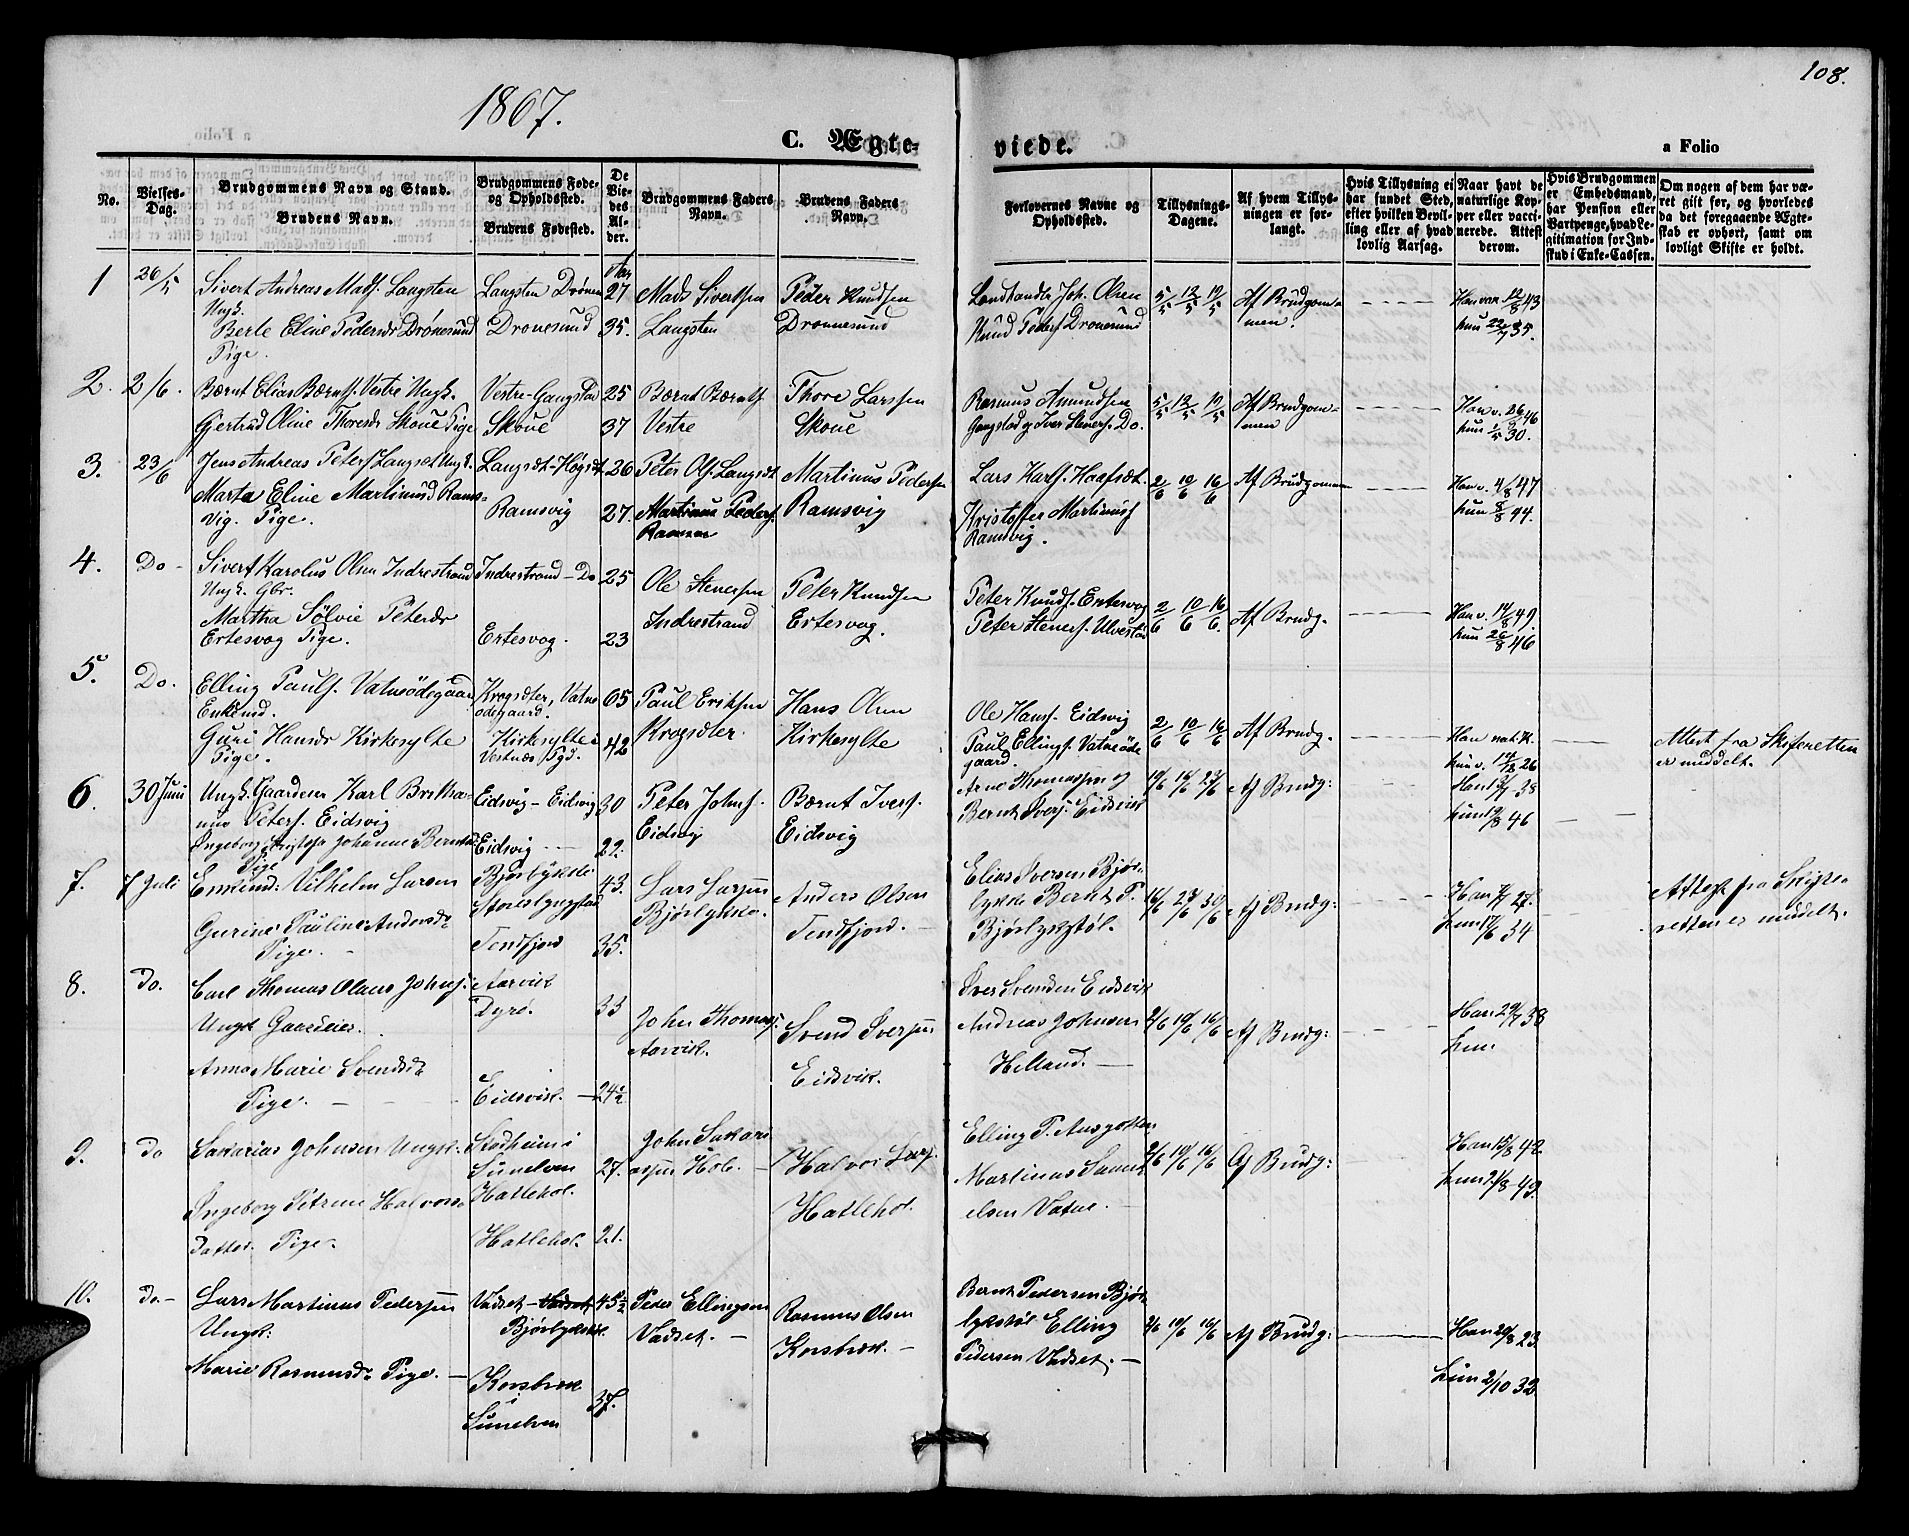 108.
1867.
a Folio
C. Ægte-
viede.
a Folio
No.
Vielses-
Dag.
Brudgommens Navn og Stand.
Brudens Navn.
Brudgommens Føde-
og Opholdssted.
Brudens Fødested.
De
Vie-
des
Al-
der.
Brudgommens Faders
Navn.
Brudens Faders
Navn.
Forlovernes Navne og
Opholdssted.
Tillysnings-
Dagene.
Af hvem Tillys-
ningen er for-
langt.
Hvis Tillysning ei
har fundet Sted,
efter hvilken Bevil-
ling eller af hvad
lovlig Aarsag.
Naar havt de
naturlige Kop-
per eller vacci-
nerede. Attest
derom.
Hvis Brudgommen
er Embedsmand,
har Pension eller
Vartpenge, hvad Le-
gitimation for Ind-
skud i Enke-Cassen.
Om nogen af dem har væ-
ret gift før, og hvorledes
da det foregaaende Ægte-
skab er ophørt, samt om
lovligt Skifte er holdt.
1 26/5 Sivert Andreas Mads. Langsten
Ungk.
Berte Eline Pedersdr Drönesund
Pige.
Langsten Drönen
Dronesund
Aar
27
35.
Mads Sivertsen
Langsten
Peder Knudsen
Dronnesund
Landhandlr Joh. Olsen
Knud Peders. Dronesund
5/5 12/5 19/5
Af Brudgom-
men.
Han vac 12/8 43
hun 22/7 35.
2. 2/6. Bernt Elias Bernts. Vestre Ungk.
Gjertrud Oline Thoresdr Skoue Pige
Vestre-Gangstad
Skoue
25
37
Bernt Berents.
Vestre
Thore Larssen
Skoue
Rasmus Amundsen
Gangstad og Iver Steners. Do.
5/5 12/5 19/5
Af Brudgom-
men
Han v. 26/8 46
hun 1/5 30.
3. 23/6 Jens Andreas Peters. Langsæt Ungk.
Marta Eline Martinusd Rams-
vig. Pige.
Langsæt-Högset
Ramsvig
26
27.
Peter Ols. Langsæt
Martinus Peders.
Martinus Pedersen
Ramsvig
Lars Karls. Haafsæt.
Kristoffer Martinus.
Ramsvig.
2/6 10/6 16/6
Af Brudgommen
Han v. 4/8 47
hun 8/8 44.
4. Do - Sivert Karolus Olsen Indrestrand
Ungk. Gbr.
Martha Sölvie Petersdr
Ertesvog Pige.
Indrestrand - Do
Ertesvog.
25
23
Ole Stenersen
Indrestrand
Peter Knudsen
Ertesvog.
Peter Knuds. Ertesvog
Peter Steners. Ulvestad
2/6 10/6 16/6.
Af Brudg.
Han v. 14/8 49.
hun 26/8 46
5. Do. Elling Pauls. Vatneödegaard
Enkemd.
Guri Hansdr Kirkesylte
Pige.
Krogsæter, Vatne
ödegaard.
Kirkesylte i
Vestnæs Pgd.
65
42
Paul Eriksen
Krogsæter.
Hans Olsen
Kirkesylte
Ole Hans. Eidsvig
Paul Ellings. Vatneöde
gaard.
2/6 10/6 16/6
Af Brudg.
Han nat. K.
hun v. 14/12 26
Attest fra Skifteretten
er meddelt.
6. 30 Juni Ungk. Gaardeier Karl Britha-
nus Peters. Eidsvig
Ingeborg Johanne Berntsd.
Pige
Eidsvig - Eidsvig
Eidsvig
30
22.
Peter Johns.
Eidsvig
Bernt Ivers.
Eidsvig
Arne Thomassen og
Bernt Ivers. Eidsvik
10/6 16/6 23/6
Af Brudg:
Han 38
hun 46
7. 7 Juli Enkemd: Vilhelm Larsen
Gurine Pauline Andersdr
Pige. -
Bjørlykke i
Tenfjord
43.
35.
Lars Larsen
Bjørlykke.
Anders Olsen
Tenfjord. -
Elias Iversen Bjør-
lykke Bernt P.
Bjørlykstøl.
16/6 23/6 30/6
Af Brudg:
Han 27.
hun 34
Attest fra Skifte-
retten er meddelt.
8. Do. Carl Thomas Olaus Johns.
Ungk Gaardeier.
Anna Marie Svendsdr
Pige. -
Aarvik
Dyrö.
Eidsvik. -
33
24½
John Thomas.
Aarvik.
Svend Iversen
Eidsvik.
Iver Svendsen Eidsvik
Andreas Johnsen
Helland. -
2/6 10/6 16/6
Af Brudg:
Han 29/7 38
hun
9. Do Sakarias Johnsen Ungk.
Ingeborg Petrine Halvors-
datter. Pige.
Stadheim i
Sunelven
Hatlehol.
Hatlehol.
27.
21.
John Sakari
assen Hole. -
Halvor Lars.
Hatlehol.
Elling P. Ausgotten
Martinus Samu-
elsen Vatne. -
2/6 10/6 16/6
Af Brudg:
Han 15/8 42
hun 21/8 49.
10. Do - Lars Martinus Pedersen
Ungk:
Marie Rasmusdr Pige. -
Vadset - Vadset
Bjørlykstøl.
Korsbrek
i
Sunelven
45½
37.
Peder Ellingsen
Vadset. -
Rasmus Olsen
Korsbrek. -
Bernt Pedersen Bjør-
lykstøl Elling
Pedersen Vadset. -
2/6 10/6 16/6
Af Brudg:
Han 20/8 23.
hun 2/10 32